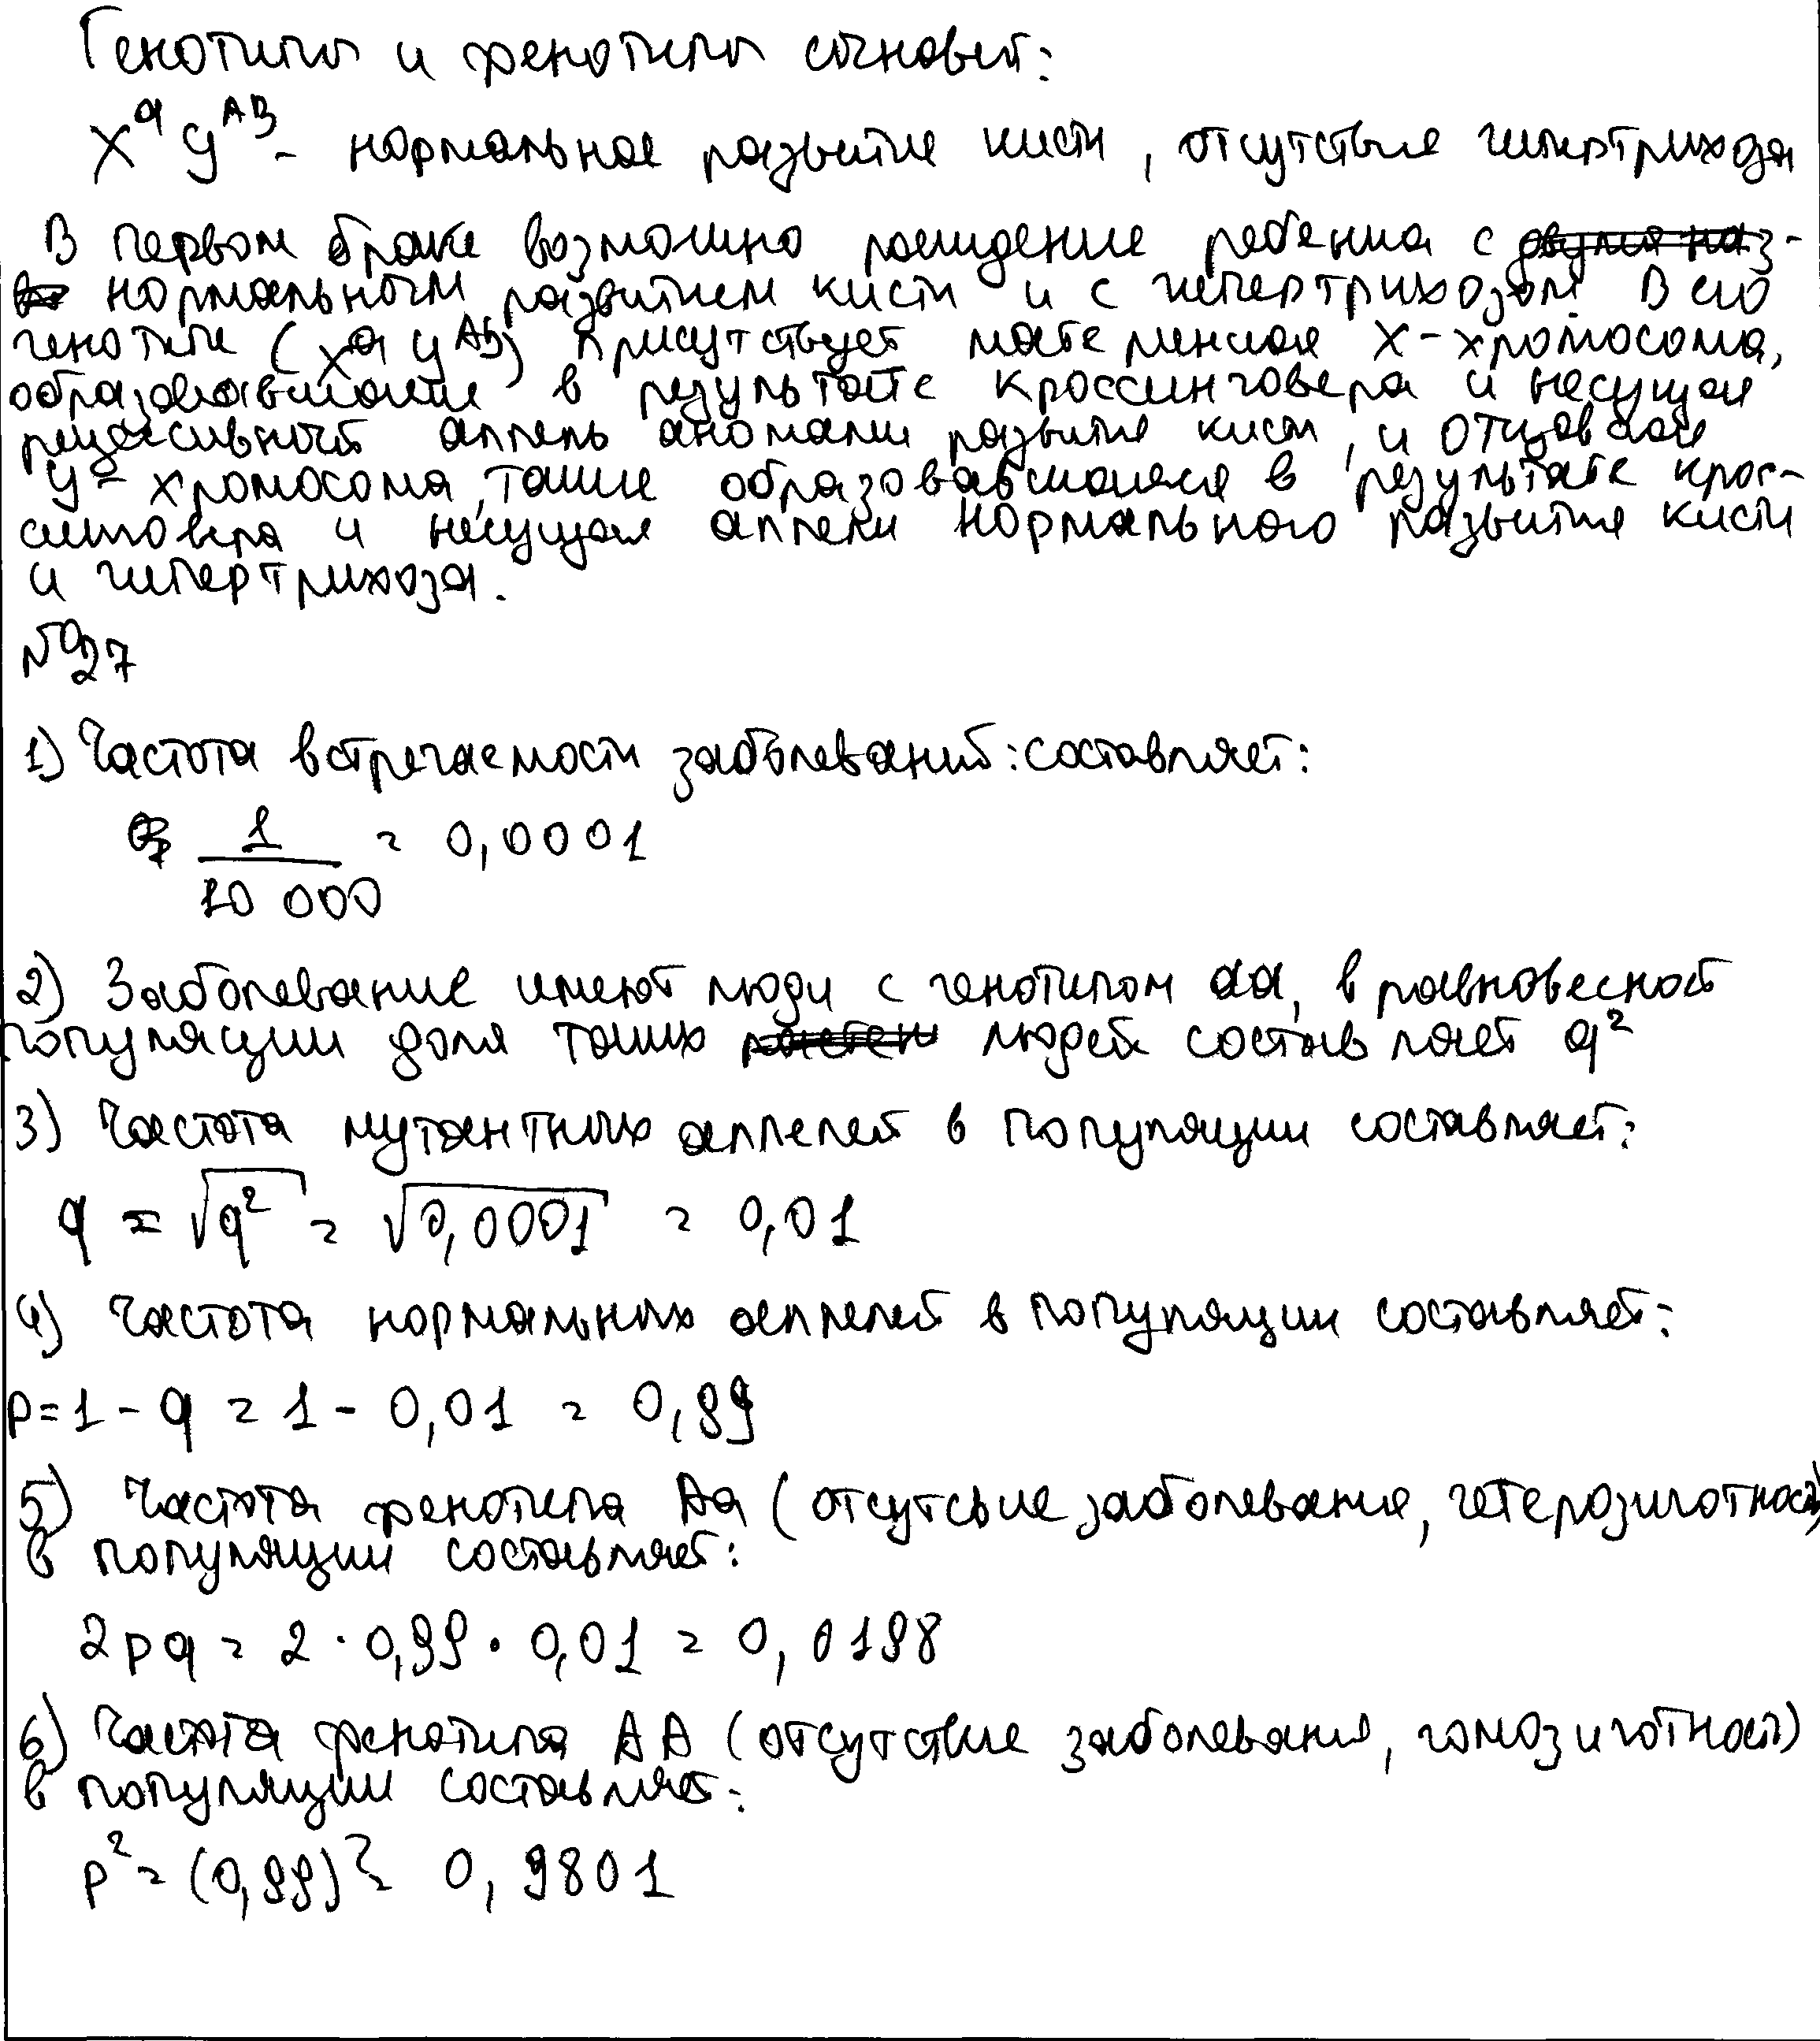 Генотипы и фенотипы сыновей:
X^a y^AB - нормальное развитие кисти, отсутствие гипертрихоза
В первом браке возможно рождение ребенка с
нормальным развитием кисти и с гипертрихозом. В его
генотипе (X^a y^AB) присутствует материнская X-хромосома,
образовавшаяся в результате кроссинговера и несущая
рецессивный аллель аномалии развития кисти, и отцовская
y-хромосома, также образовавшаяся в результате крос-
синговера и несущая аллели нормального развития кисти
и гипертрихоза.
№27
1) Частота встречаемости заболеваний: составляет:
1/10 000 = 0,0001
2) Заболевание имеют люди с генотипом aa, в равновесной
популяции доля таких людей составляет q²
3) Частота мутантных аллелей в популяции составляет:
q = √q² = √0,0001 = 0,01
4) Частота нормальных аллелей в популяции составляет:
p = 1 - q = 1 - 0,01 = 0,99
5) Частота фенотипа Aa (отсутсвие заболевания, гетерозиготность)
в популяции составляет:
2pq = 2 · 0,99 · 0,01 = 0,0198
6) Частота фенотипа AA (отсутствие заболевания, гомозиготность)
в популяции составляет:
p² = (0,99)² = 0,9801